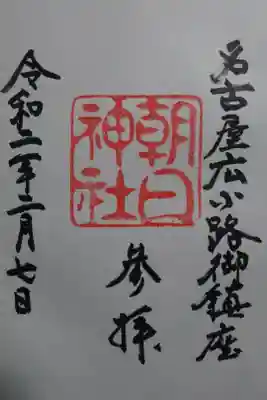 名古屋広小路御鎮座
朝日
神社
参拝
令和二年二月七日